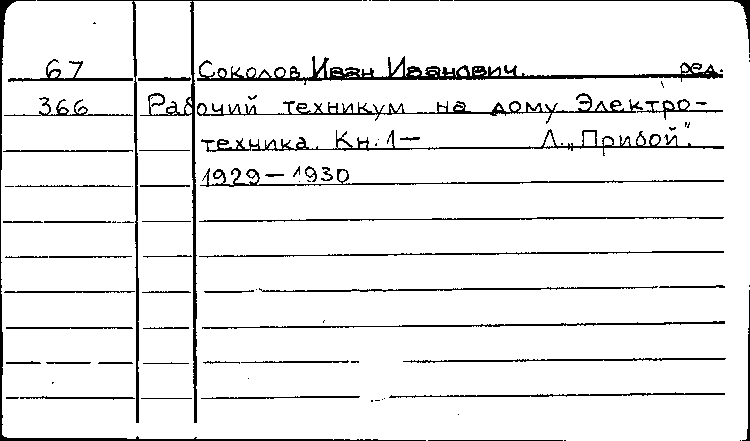 67 Соколов, Иван Иванович. ред.
366 Рабочий техникум на дому Электро-
техника. Кн. 1— Л. „Прибой".
1929—1930